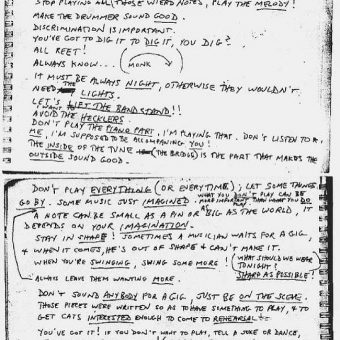 STOP PLAYING ALL THOSE WEIRD NOTES, PLAY THE MELODY!
MAKE THE DRUMMER SOUND GOOD.
DISCRIMINATION IS IMPORTANT.
YOU'VE GOT TO DIG IT TO DIG IT, YOU DIG?
ALL REET!
ALWAYS KNOW... MONK
IT MUST BE ALWAYS NIGHT, OTHERWISE THEY WOULDN'T
NEED THE LIGHTS.
LET'S LIFT THE BAND STAND!!
I WANT TO AVOID THE HECKLERS.
DON'T PLAY THE PIANO PART, I'M PLAYING THAT. DON'T LISTEN TO
ME, I'M SUPPOSED TO BE ACCOMPANYING YOU!
THE INSIDE OF THE TUNE (THE BRIDGE) IS THE PART THAT MAKES THE
OUTSIDE SOUND GOOD.
DON'T PLAY EVERYTHING (OR EVERYTIME); LET SOME THINGS
GO BY. SOME MUSIC JUST IMAGINED. WHAT YOU DON'T PLAY CAN BE
MORE IMPORTANT THAN WHAT YOU DO
A NOTE CAN BE SMALL AS A PIN OR AS BIG AS THE WORLD, IT
DEPENDS ON YOUR IMAGINATION.
STAY IN SHAPE! SOMETIMES A MUSICIAN WAITS FOR A GIG,
& WHEN IT COMES, HE'S OUT OF SHAPE & CAN'T MAKE IT.
WHEN YOU'RE SWINGING, SWING SOME MORE!
WHAT SHOULD WE WEAR
TONIGHT?
SHARP AS POSSIBLE!
ALWAYS LEAVE THEM WANTING MORE.
DON'T SOUND ANYBODY FOR A GIG, JUST BE ON THE SCENE.
THOSE PIECES WERE WRITTEN SO AS TO HAVE SOMETHING TO PLAY, & TO
GET CATS INTERESTED ENOUGH TO COME TO REHEARSAL.
YOU'VE GOT IT! IF YOU DON'T WANT TO PLAY, TELL A JOKE OR DANCE,